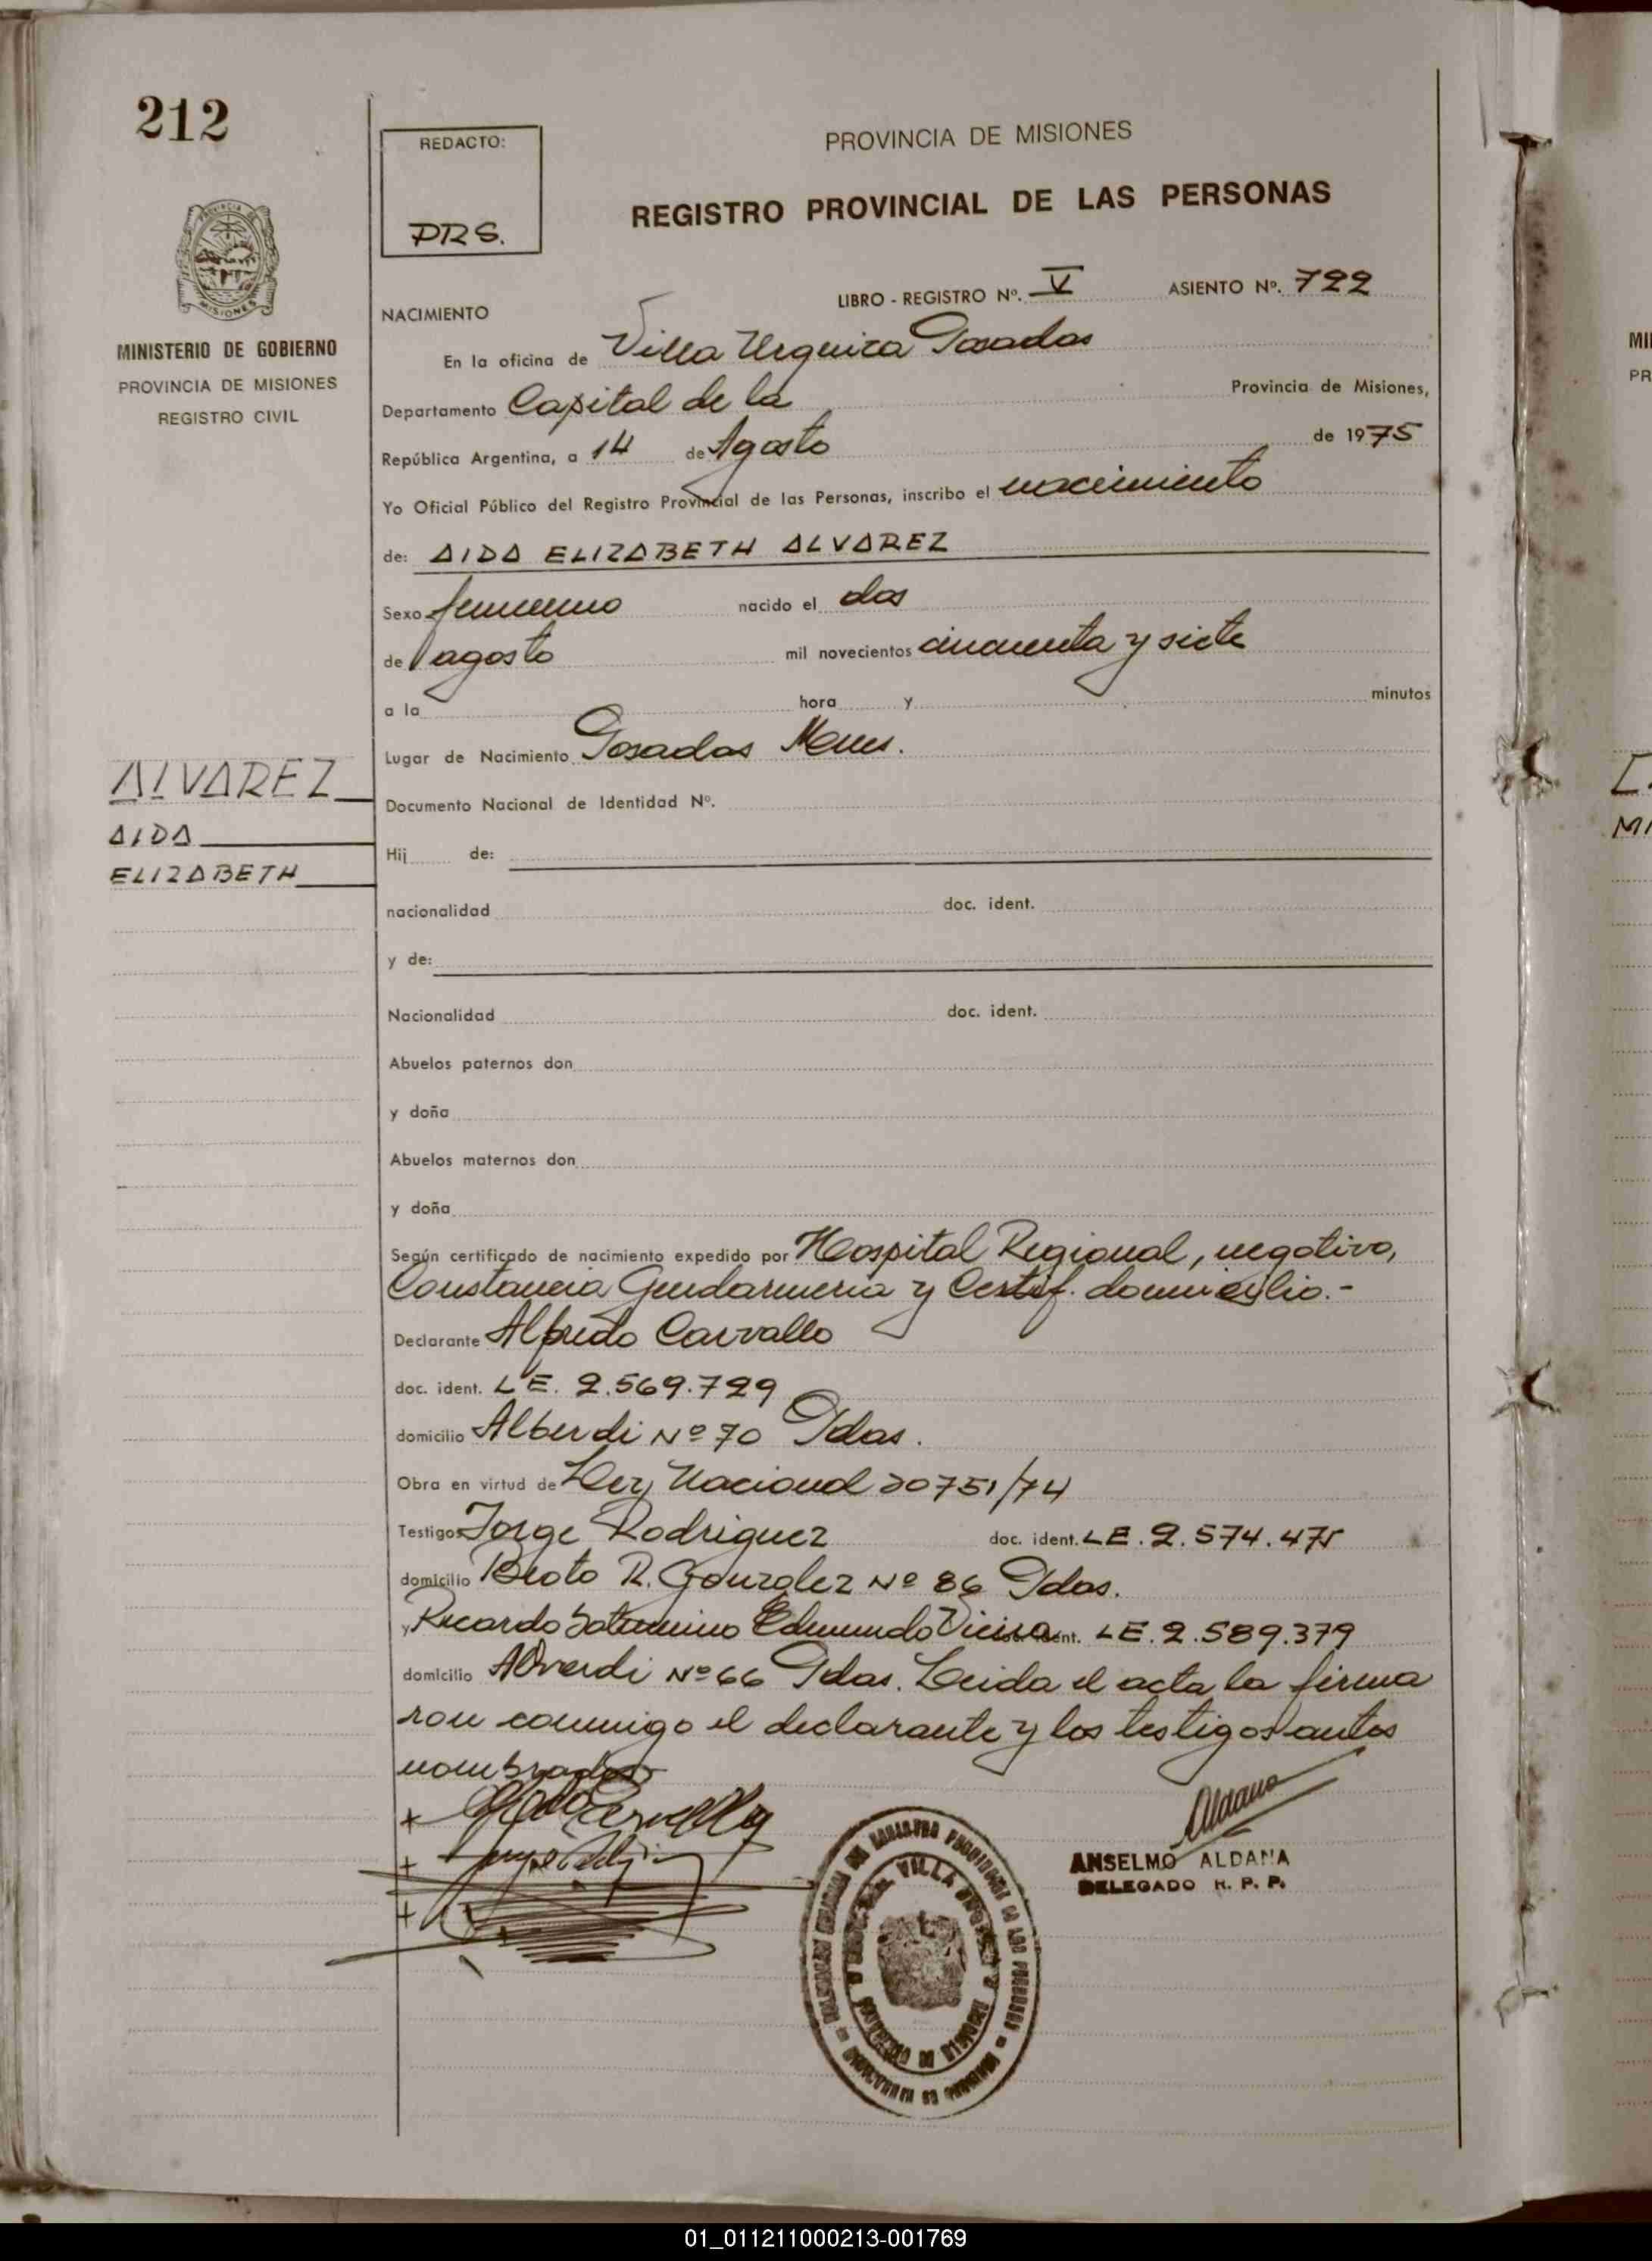 212
REDACTO:
PRS.
PROVINCIA DE MISIONES
REGISTRO PROVINCIAL DE LAS PERSONAS
PROVINCIA DE
MISIONES
MINISTERIO DE GOBIERNO
PROVINCIA DE MISIONES
REGISTRO CIVIL
LIBRO - REGISTRO Nº. V ASIENTO Nº. 722
NACIMIENTO
En la oficina de Villa Urquiza Posadas
Departamento Capital de la Provincia de Misiones,
República Argentina, a 14 de Agosto de 1975
Yo Oficial Público del Registro Provincial de las Personas, inscribo el nacimiento
de: AIDA ELIZABETH ALVAREZ
Sexo femenino nacido el dos
de agosto mil novecientos cincuenta y siete
a la hora y minutos
Lugar de Nacimiento Posadas Mnes.
ALVAREZ
AIDA
ELIZABETH
Documento Nacional de Identidad Nº.
Hij de:
nacionalidad doc. ident.
y de:
Nacionalidad doc. ident.
Abuelos paternos don
y doña
Abuelos maternos don
y doña
Según certificado de nacimiento expedido por Hospital Regional, negativo,
Constancia Gendarmeria y Certif. domicilio.-
Declarante Alfredo Carvallo
doc. ident. LE. 2.569.729
domicilio Alberdi Nº 70 Pdas.
Obra en virtud de Ley Nacional 20751/74
Testigos Jorge Rodriguez doc. ident. LE. 2.574.475
domicilio Beato R. Gonzalez Nº 86 Pdas.
y Ricardo Saturnino Edmundo Vieira ident. LE. 2.589.379
domicilio Alverdi Nº 66 Pdas. Leida el acta la firma
ron conmigo el declarante y los testigos antes
nombrados-
Aldana
ANSELMO ALDANA
DELEGADO R. P. P.
VILLA
01_011211000213-001769